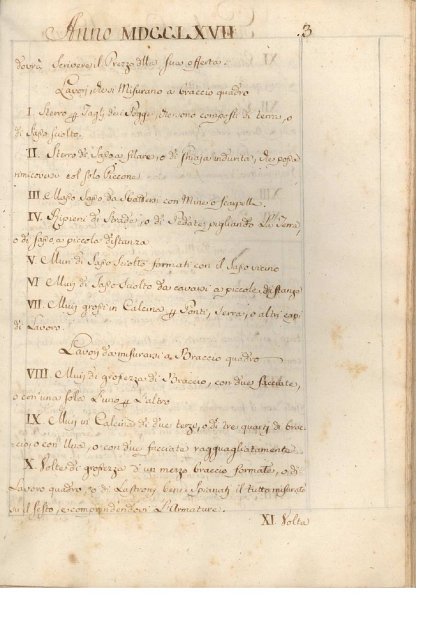 Anno MDCCLXVII 3
dovrà scrivere il Prezzo della sua offerta.
Lavori, che si Misurano a braccio quadro
I. Sterro per Tagli dei Poggi, che sono composti di terra, o
di sasso sciolto.
II. Sterro di Sasso a filare, o di ghiaja indurita, che possa
rimuoversi col solo Piccone
III Masso Sasso da sbattersi con Mine o scarpelli.
IV. Ripieni di Strade, o di Pedate, pigliando La Terra,
o di sasso, a piccola distanza
V Muri di Sasso sciolto formati con il Sasso vicino
VI Muri di Sasso sciolto da cavarsi a piccole distanze
VII. Muri grossi in Calcina per Ponti, Serra, o altri capi
di Lavoro
Lavori da misurarsi a Braccio quadro
VIII. Muri di grossezza di Braccio, con due facciate,
o con una sola L'uno per L'altro
IX. Muri in Calcina di due terzi, o di tre quarti di brac-
cio, o con Una, o con due facciate ragguagliatamente
X. Volte di grossezza d'un mezzo braccio formate, o di
Lavoro quadro, o di Lastroni bene spianati il tutto misurato
su il sesto, e comprendendovi L'Armature.
XI. Volta